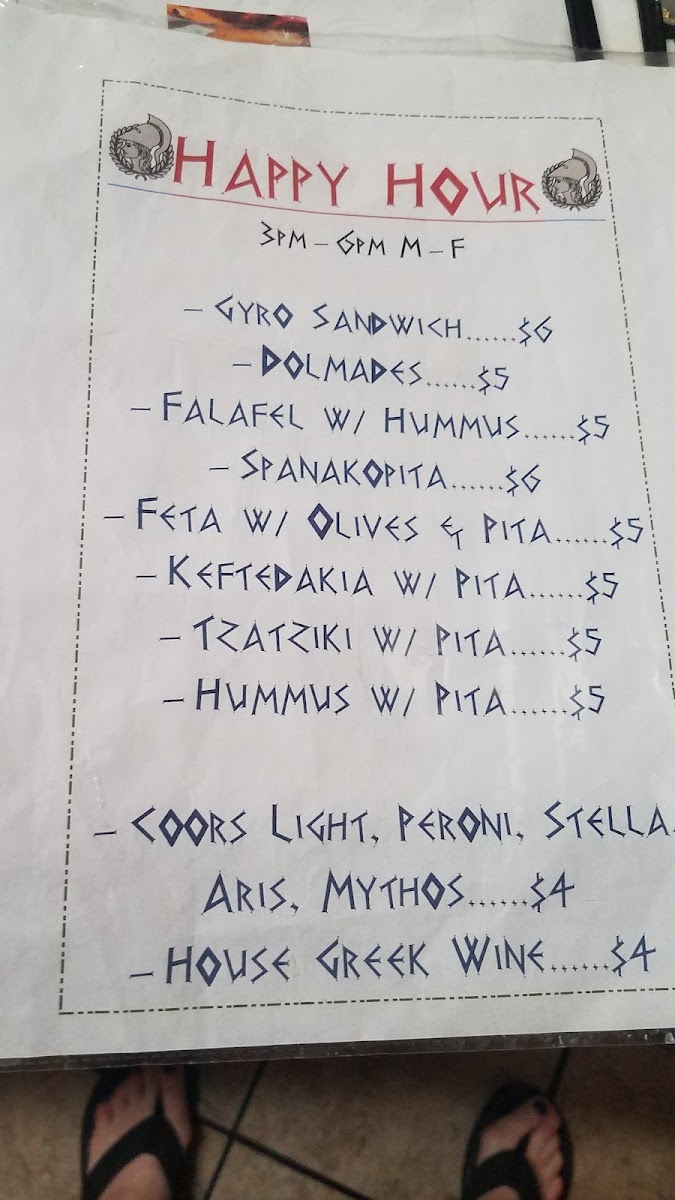 Happy Hour
3pm – 6pm M – F
– Gyro Sandwich......$6
– Dolmades......$5
– Falafel w/ Hummus......$5
– Spanakopita......$6
– Feta w/ Olives & Pita......$5
– Keftedakia w/ Pita......$5
– Tzatziki w/ Pita......$5
– Hummus w/ Pita......$5
– Coors Light, Peroni, Stella,
Aris, Mythos......$4
– House Greek Wine......$4